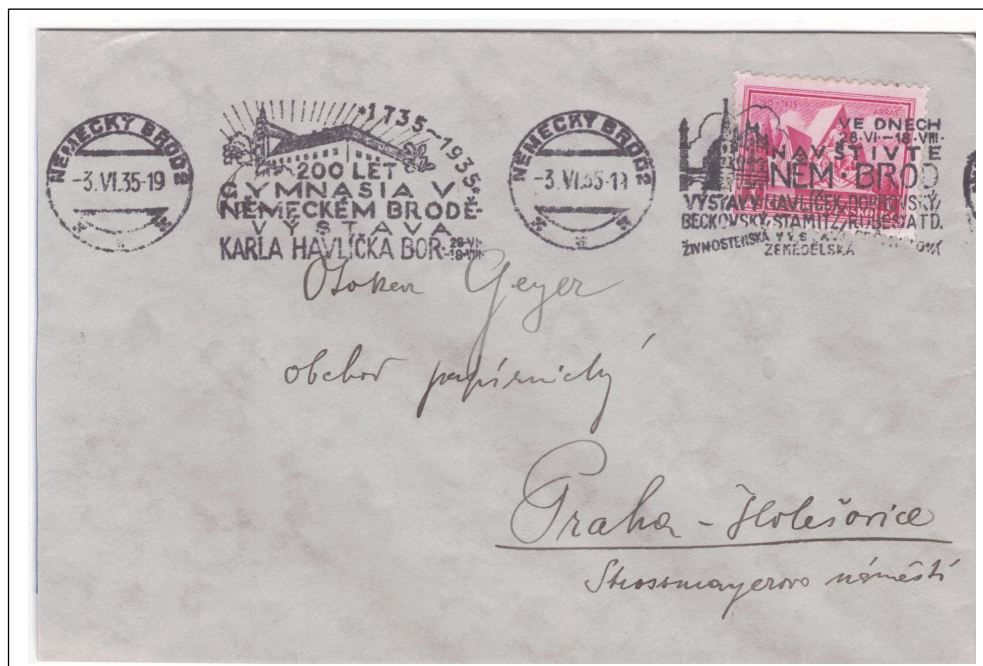 NĚMECKÝ BROD 2
-3.VI.35-19
*1735~1935*
200 LET
GYMNASIA V
NĚMECKÉM BRODĚ-
VÝSTAVA
KARLA HAVLÍČKA BOR.
28-VI-
-18-VIII-
NĚMECKÝ BROD 2
-3.VI.35-19
1915-1935
ARRAS
VE DNECH
28-VI-~18-VIII-
NAVŠTIVTE
NĚM·BROD
VÝSTAVY HAVLÍČEK, DOBROVSKÝ,
BECKOVSKÝ, STAMITZ, ROBEŠ ATD.
ŽIVNOSTENSKÁ
ZEMĚDĚLSKÁ
Otokar Geyer
obchod papírnický
Praha - Holešovice
Strossmayerovo náměstí